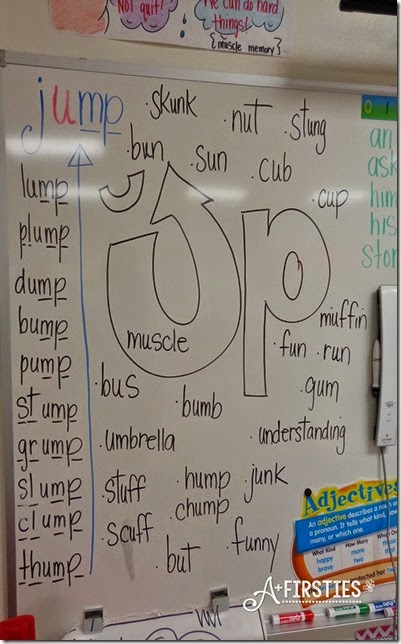 Not quit!
We can do hard
things!
{muscle memory}
jump
lump
plump
dump
bump
pump
stump
grump
slump
clump
thump
up
muscle
·skunk
·nut
·stung
·bun
·sun
·cub
·cup
muffin
·fun ·run
·gum
·bus
·bumb
·umbrella
·understanding
·stuff
·hump
·junk
·chump
·scuff
·but
·funny
an
ask
him
his
Adjectives
An adjective describes a noun or
a pronoun. It tells what kind, how
many, or which one.
What Kind
How Many
happy
more
brave
two
A+FIRSTIES